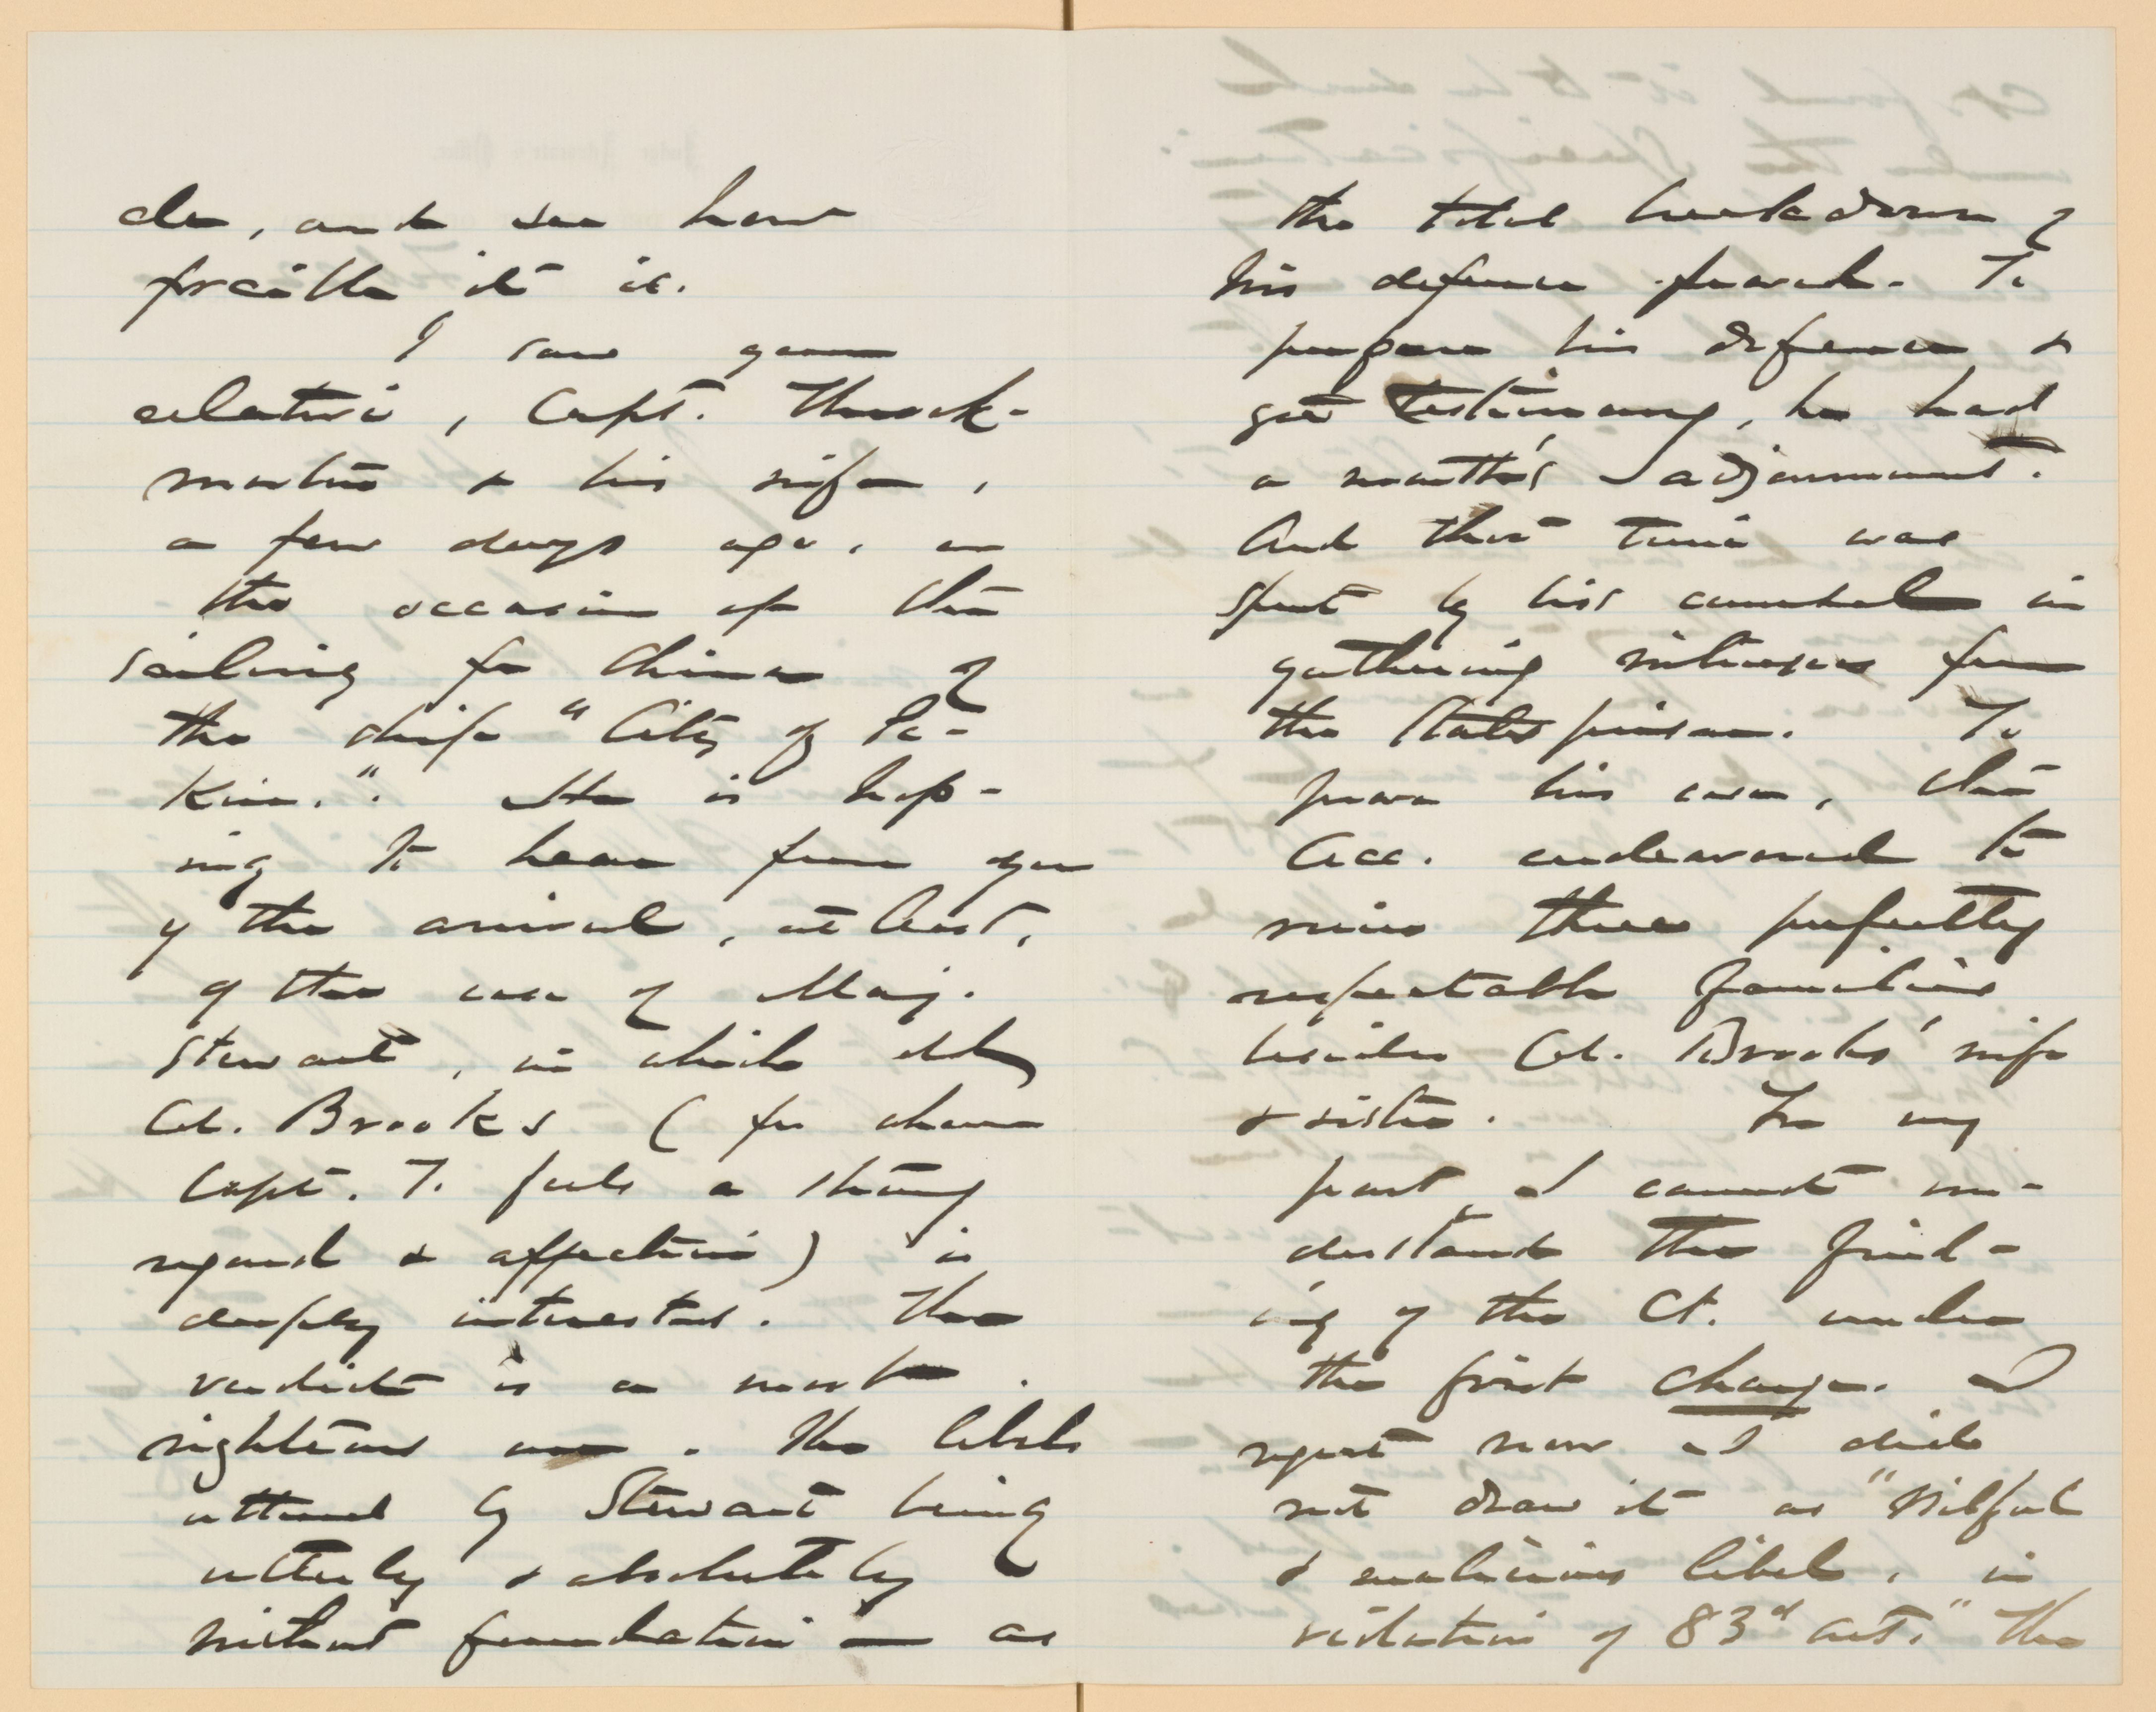 do, and see how
forcible it is.
I saw your
relative, Capt. Throck-
morton & his wife,
a few days ago, on
the occasion of the
sailing for China of
the ship "City of Pe-
kin.". He is hop-
ing to hear from you
of the arrival, at least,
of the case of Maj.
Stewart, in which old
Col. Brooks (for whom
Capt. T. feels a strong
regard & affection) is
deeply interested. The
verdict is a most
righteous one. The libels
uttered by Stewart being
utterly & absolutely
without foundation — as
the total breakdown of
his defence proved. To
prepare his defence &
get testimony, he had
a month's adjournment.
And that time was
spent by his counsel in
gathering witnesses from
the States prison. To
prove his case, the
Acc. endeavored to
ruin three perfectly
respectable families
besides Col. Brooks' wife
& sister. For my
part, I cannot un-
derstand the find-
ing of the Ct. under
the first charge. I
regret now I did
not draw it as "Wilful
& malicious libel, in
violation of 83d art." The